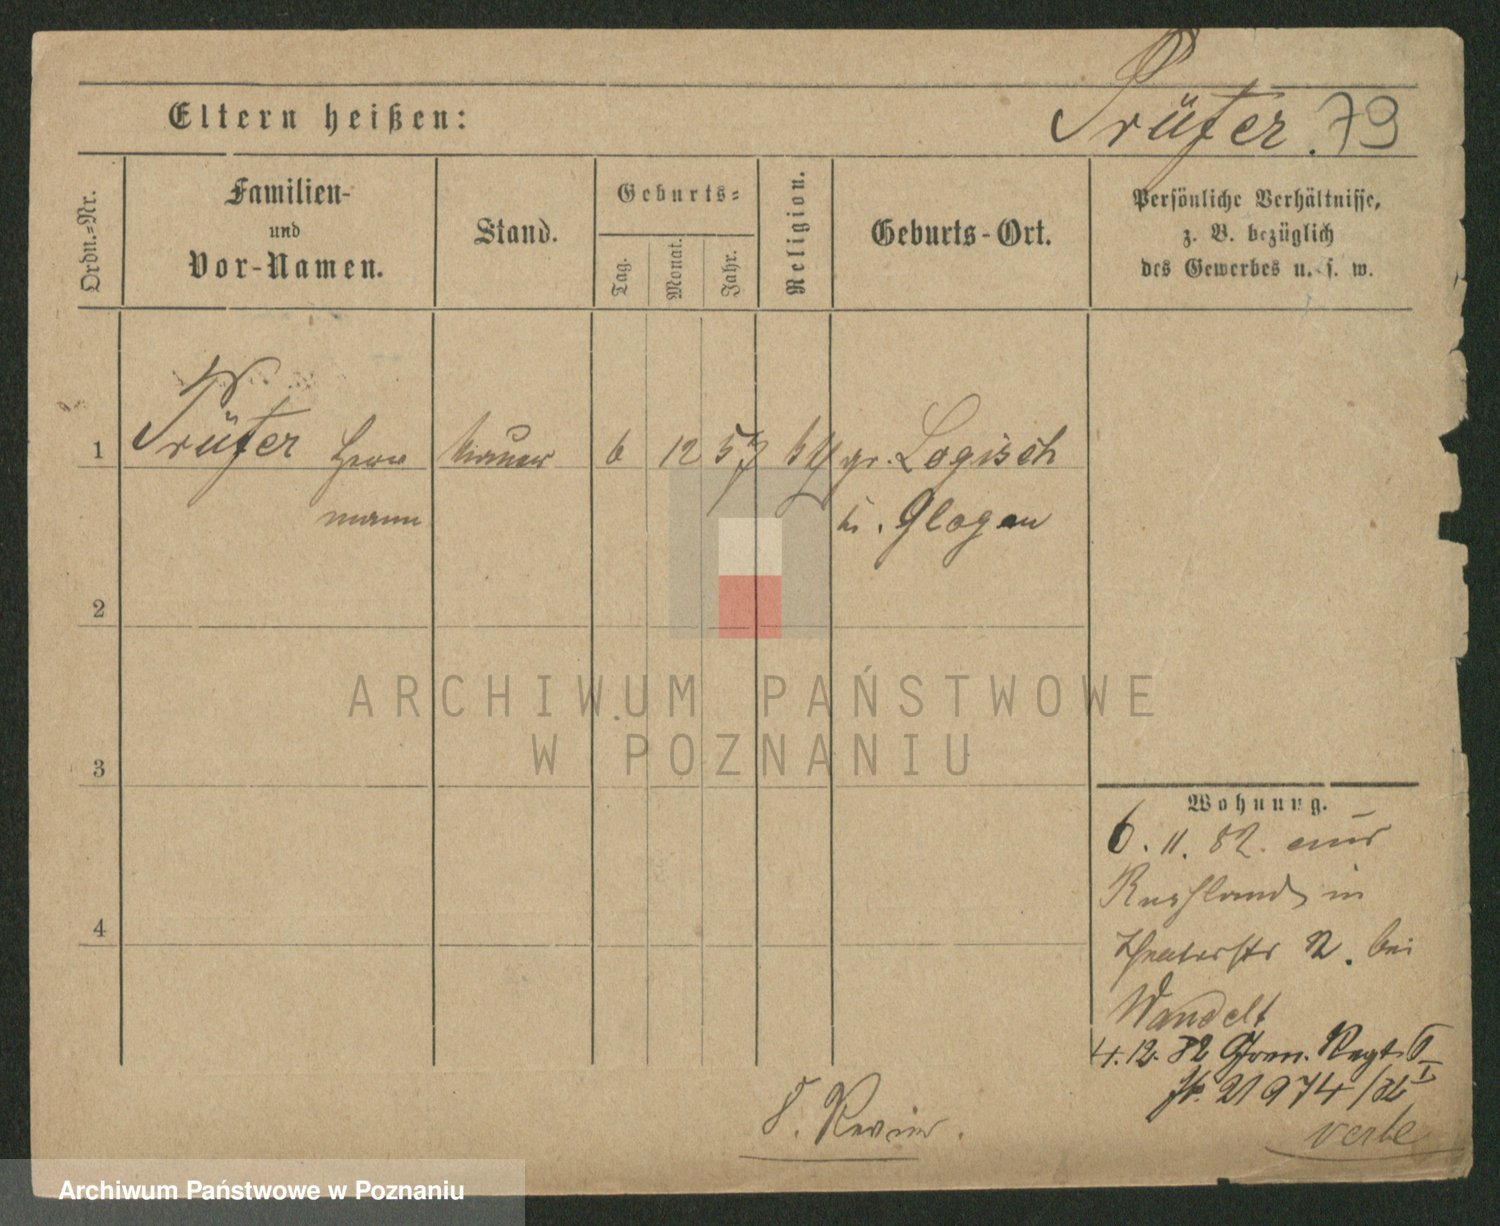 Prüfer. 79
Eltern heißen:
Ordn.=Nr.
Familien-
und
Vor-Namen.
Stand.
Geburts=
Tag.
Monat.
Jahr.
Religion.
Geburts-Ort.
Persönliche Verhältnisse,
z. B. bezüglich
des Gewerbes u. s. w.
1 Prüfer Herr 6 12 57 gr. Logisch
mann Glogau
2
ARCHIWUM PAŃSTWOWE
W POZNANIU
3
Wohnung.
6. 11. 82. aus
Russland in
4
Theaterstr 2. bei
Wandelt
4. 12. 82 Gren. Regt. 6
21974/82
8. Revier.
Archiwum Państwowe w Poznaniu